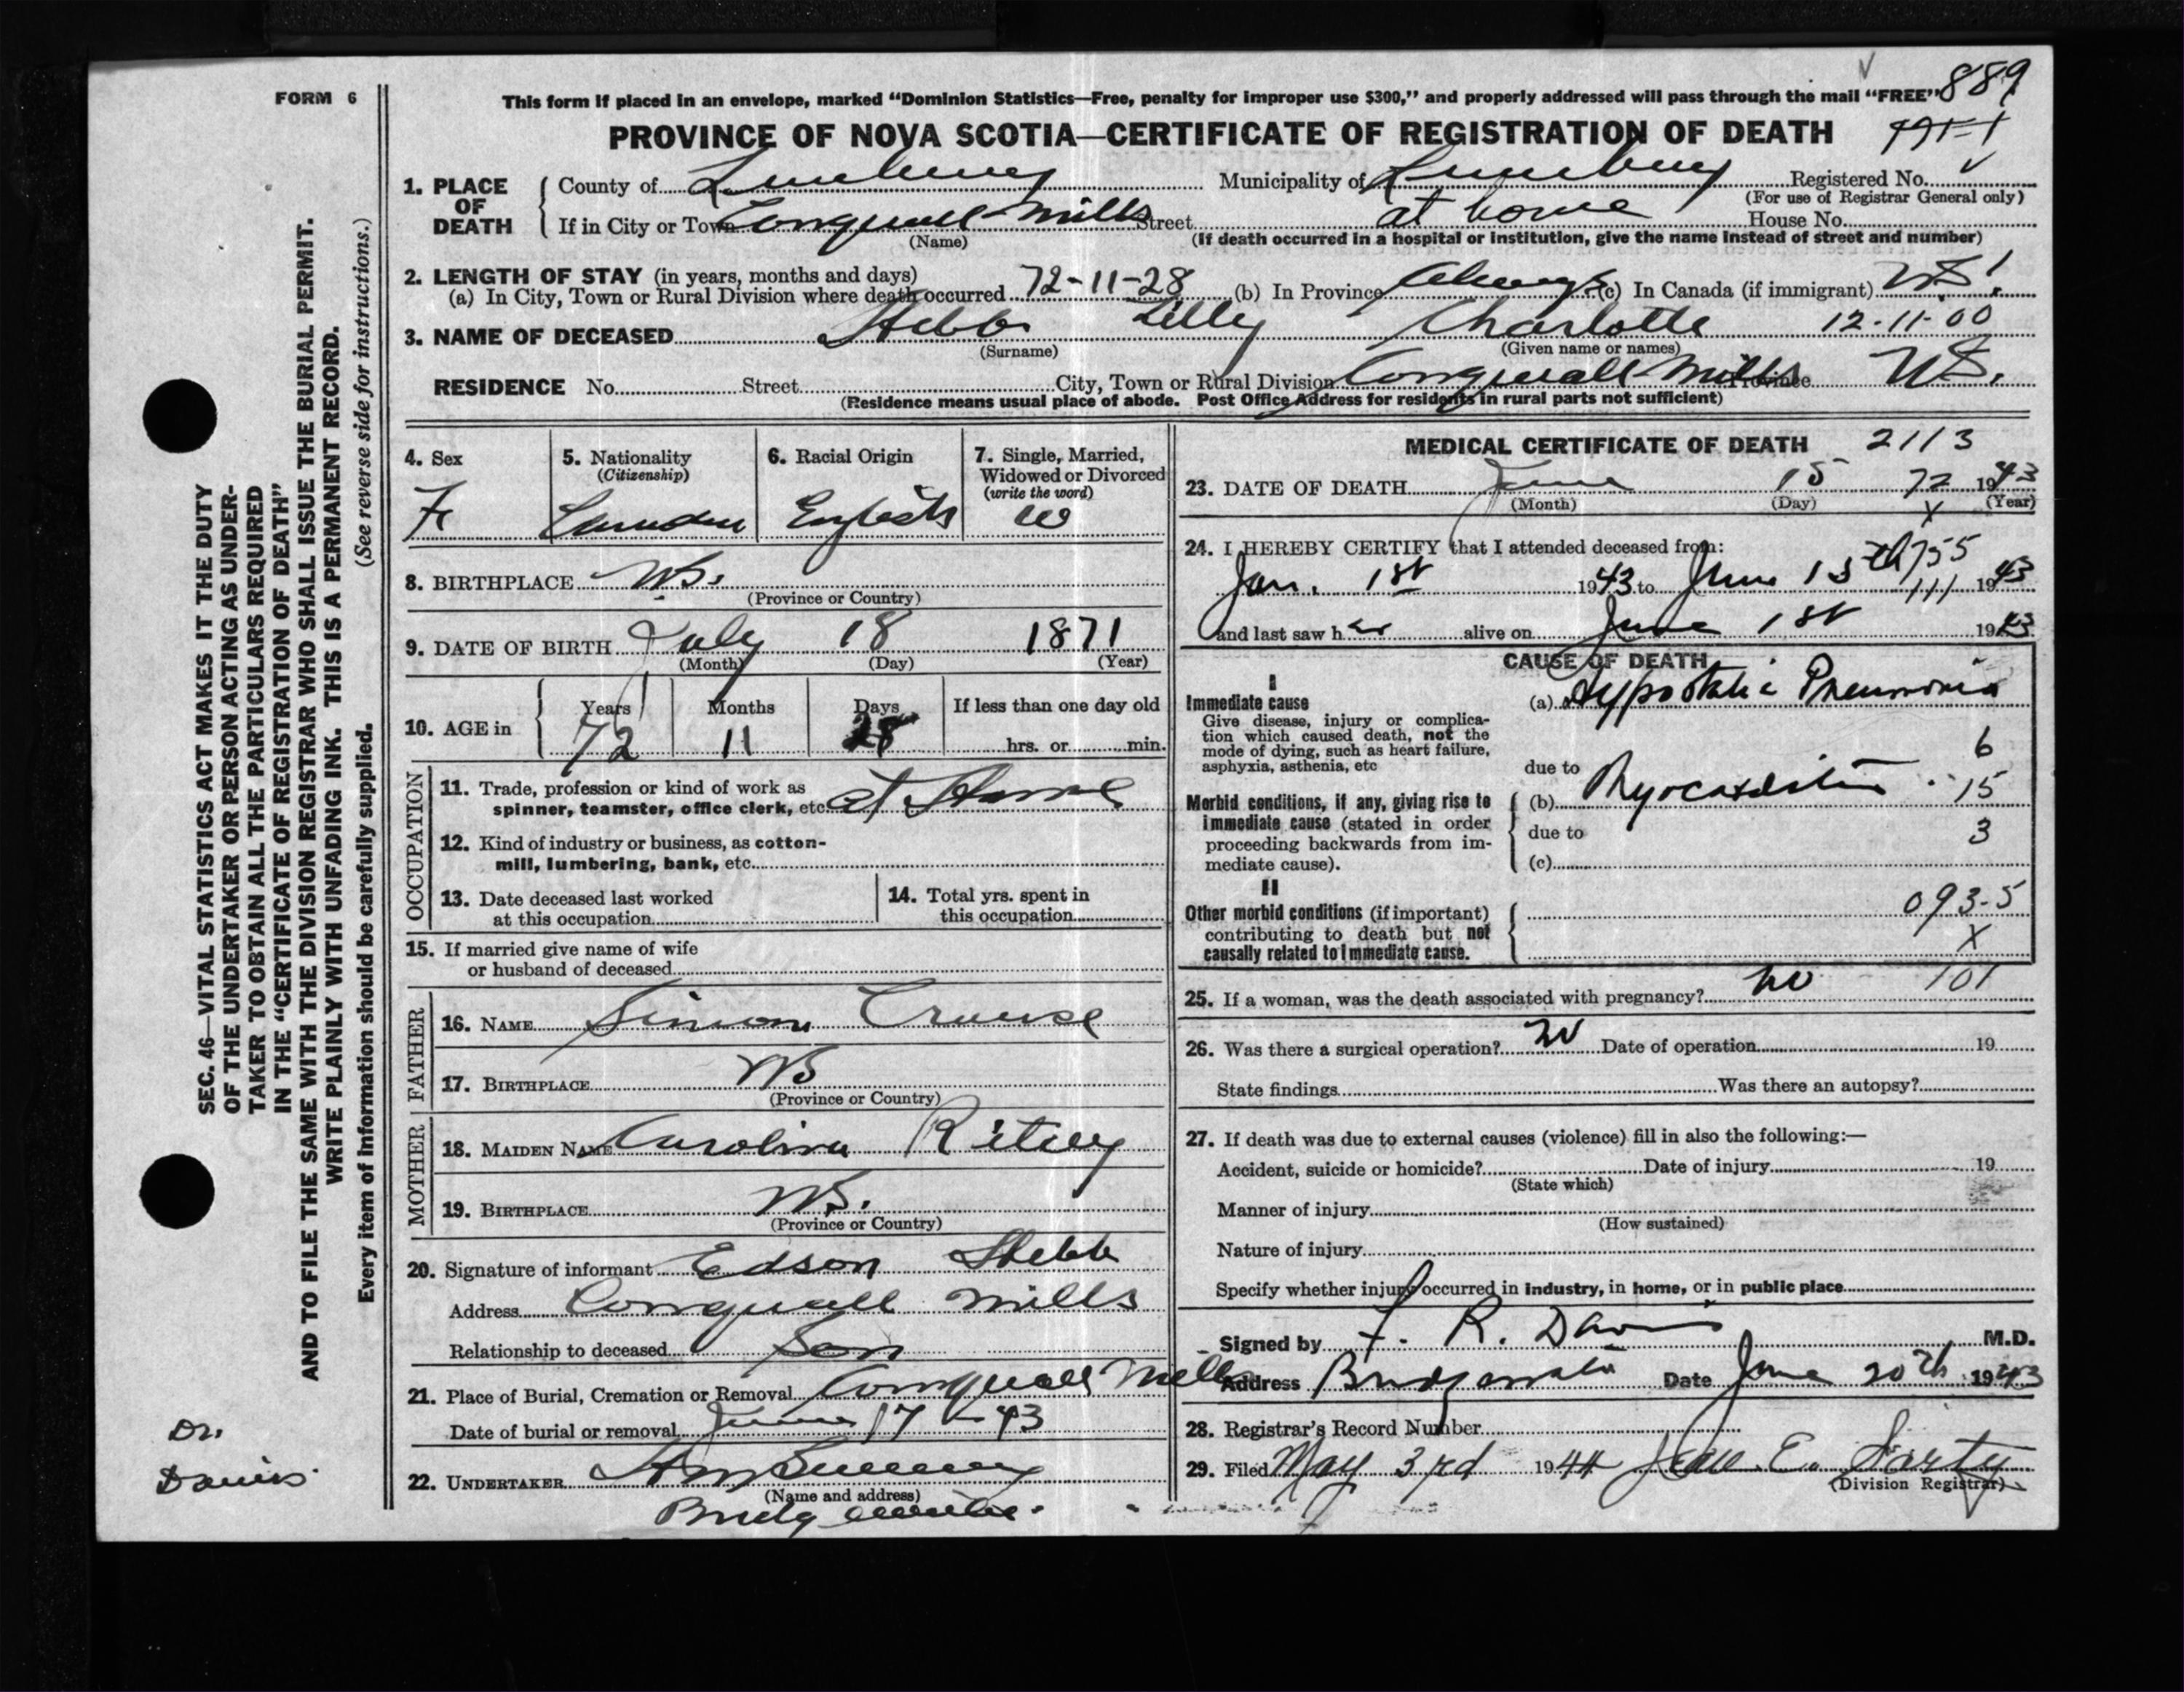 FORM 6
889
This form if placed in an envelope, marked “Dominion Statistics—Free, penalty for improper use $300,” and properly addressed will pass through the mail “FREE”
PROVINCE OF NOVA SCOTIA—CERTIFICATE OF REGISTRATION OF DEATH
1. PLACE OF DEATH
County of Lunenburg Municipality of Lunenburg Registered No.
(For use of Registrar General only)
If in City or Town Conquerall Mills Street at home House No.
(Name) (If death occurred in a hospital or institution, give the name instead of street and number)
2. LENGTH OF STAY (in years, months and days)
(a) In City, Town or Rural Division where death occurred 72-11-28 (b) In Province Always (c) In Canada (if immigrant)
3. NAME OF DECEASED Hebb Lilly Charlotte 12-11-00
(Surname) (Given name or names)
RESIDENCE No. Street City, Town or Rural Division Conquerall Mills Province N.S.
(Residence means usual place of abode. Post Office Address for residents in rural parts not sufficient)
4. Sex
F
5. Nationality
(Citizenship)
6. Racial Origin
English
7. Single, Married,
Widowed or Divorced
(write the word)
W
8. BIRTHPLACE N.S.
(Province or Country)
9. DATE OF BIRTH July 18 1871
(Month) (Day) (Year)
10. AGE in
Years Months Days If less than one day old
72 11 28 hrs. or min.
OCCUPATION
11. Trade, profession or kind of work as
spinner, teamster, office clerk, etc. at Home
12. Kind of industry or business, as cotton-
mill, lumbering, bank, etc.
13. Date deceased last worked
at this occupation
14. Total yrs. spent in
this occupation
15. If married give name of wife
or husband of deceased
FATHER
16. NAME Simon Crouse
17. BIRTHPLACE NS
(Province or Country)
MOTHER
18. MAIDEN NAME Carolina
19. BIRTHPLACE N.S.
(Province or Country)
20. Signature of informant Edson Hebb
Address Conquerall Mills
Relationship to deceased Son
21. Place of Burial, Cremation or Removal Conquerall Mills
Date of burial or removal June 17 - 43
22. UNDERTAKER
(Name and address)
Bridgewater
MEDICAL CERTIFICATE OF DEATH 2113
23. DATE OF DEATH June 15 72 1943
(Month) (Day) (Year)
X
24. I HEREBY CERTIFY that I attended deceased from:
755
Jan. 1st 1943 to June 15th 111 1943
and last saw her alive on June 1st 1943
CAUSE OF DEATH
I
Immediate cause
Give disease, injury or complica-
tion which caused death, not the
mode of dying, such as heart failure,
asphyxia, asthenia, etc
(a) Hypostatic Pneumonia
6
due to
Morbid conditions, if any, giving rise to
immediate cause (stated in order
proceeding backwards from im-
mediate cause).
(b) Myocarditis 15
due to 3
(c)
II
Other morbid conditions (if important)
contributing to death but not
causally related to immediate cause.
093-5
X
25. If a woman, was the death associated with pregnancy? no 101
26. Was there a surgical operation? no Date of operation 19
State findings Was there an autopsy?
27. If death was due to external causes (violence) fill in also the following:—
Accident, suicide or homicide? Date of injury 19
(State which)
Manner of injury
(How sustained)
Nature of injury
Specify whether injury occurred in industry, in home, or in public place
Signed by F. R. Davis M.D.
Address Bridgewater Date June 20th 1943
28. Registrar's Record Number
29. Filed May 3rd 1944
(Division Registrar)
SEC. 46—VITAL STATISTICS ACT MAKES IT THE DUTY
OF THE UNDERTAKER OR PERSON ACTING AS UNDER-
TAKER TO OBTAIN ALL THE PARTICULARS REQUIRED
IN THE “CERTIFICATE OF REGISTRATION OF DEATH”
AND TO FILE THE SAME WITH THE DIVISION REGISTRAR WHO SHALL ISSUE THE BURIAL PERMIT.
WRITE PLAINLY WITH UNFADING INK. THIS IS A PERMANENT RECORD.
Every item of Information should be carefully supplied. (See reverse side for instructions.)
Dr.
Davis